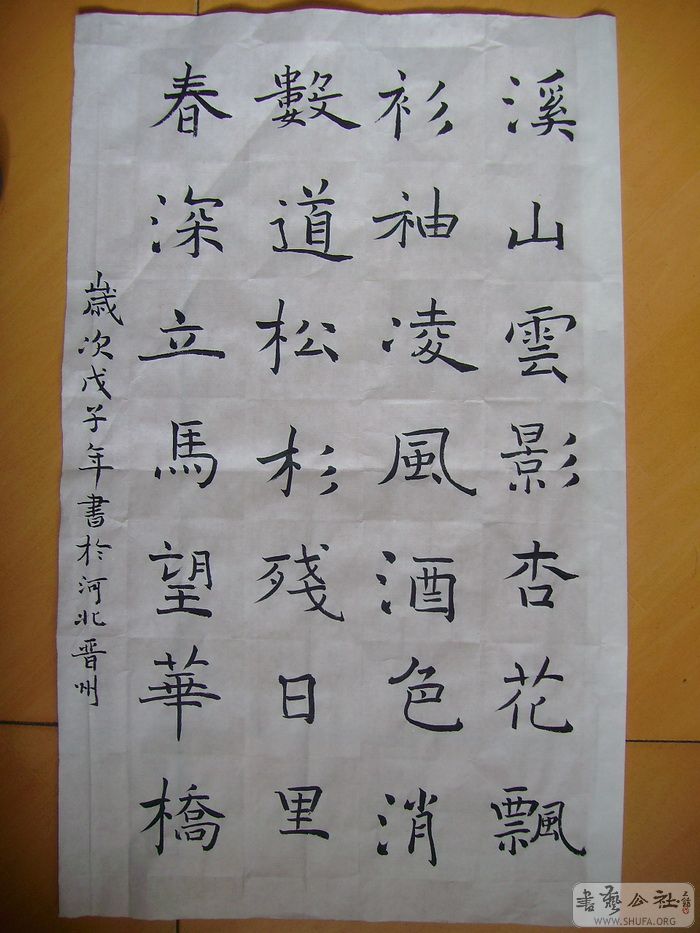 溪山雲影杏花飄
衫袖凌風酒色消
數道松杉殘日里
春深立馬望華橋
歲次戊子年書於河北晋州
書藝公社
WWW.SHUFA.ORG